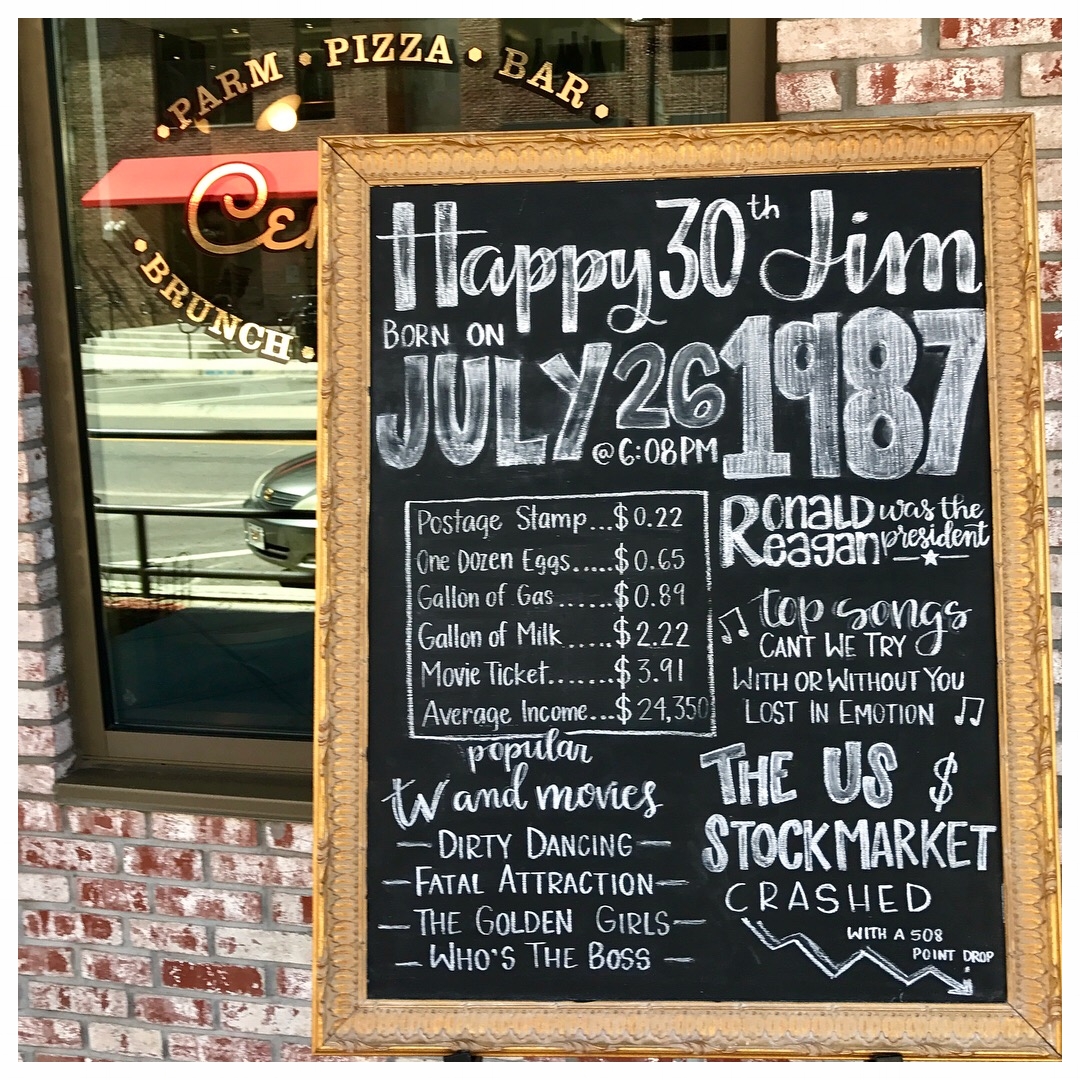 • PARM • PIZZA • BAR •
• BRUNCH •
Happy 30th Jim
BORN ON
JULY 26 1987
@ 6:08 PM
Postage Stamp...$0.22
One Dozen Eggs.....$0.65
Gallon of Gas......$0.89
Gallon of Milk.....$2.22
Movie Ticket.......$3.91
Average Income...$24,350
RONALD REAGAN was the president
top songs
CANT WE TRY
WITH OR WITHOUT YOU
LOST IN EMOTION
popular
tv and movies
— DIRTY DANCING —
— FATAL ATTRACTION —
— THE GOLDEN GIRLS —
— WHO'S THE BOSS —
THE US $
STOCK MARKET
CRASHED
WITH A 508
POINT DROP